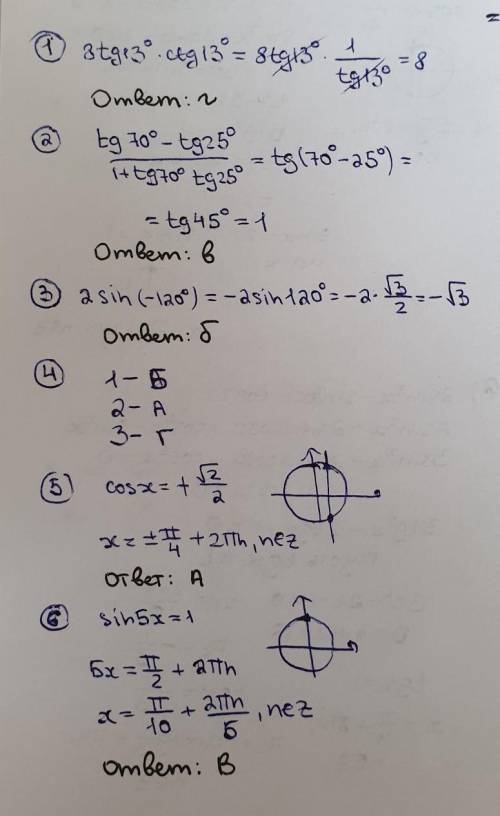 ① 8tg13° · ctg13° = 8tg13° · 1/tg13° = 8
Ответ: г
② (tg70° – tg25°)/(1 + tg70° tg25°) = tg(70° – 25°) =
= tg45° = 1
Ответ: в
③ 2sin(-120°) = -2sin120° = -2 · √3/2 = -√3
Ответ: б
④ 1 – Б
2 – А
3 – Г
⑤ cosx = + √2/2
x = ± π/4 + 2πn, n∈z
ответ: А
⑥ sin5x = 1
5x = π/2 + 2πn
x = π/10 + 2πn/5, n∈z
ответ: В